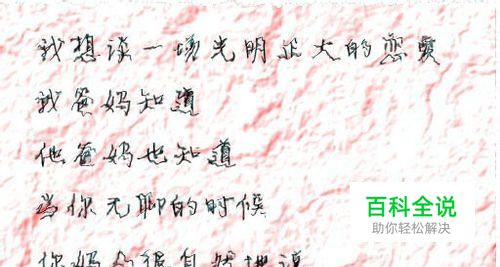 我想谈一场光明正大的恋爱
我爸妈知道
他爸妈也知道
当你无聊的时候
你妈会很自然地说
百科全说
助你轻松解决